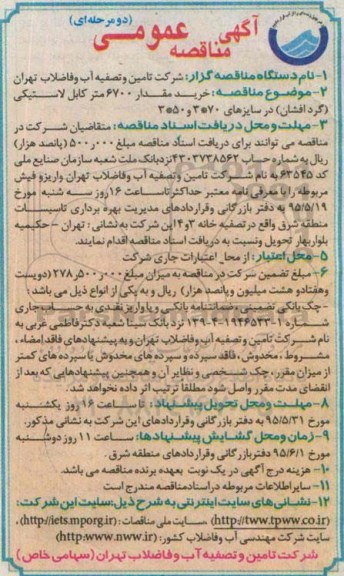 (دو مرحله ای)
آگهی مناقصه عمومی
۱-نام دستگاه مناقصه گزار: شرکت تامین و تصفیه آب و فاضلاب تهران
۲-موضوع مناقصه: خرید مقدار ۶۷۰۰ متر کابل لاستیکی
(گرد افشان) در سایزهای ۷۰*۳ و ۵۰*۳
۳- مهلت و محل دریافت اسناد مناقصه: متقاضیان شرکت در
مناقصه می توانند برای دریافت اسناد مناقصه مبلغ ۵۰۰٫۰۰۰ (پانصد هزار)
ریال به شماره حساب ۴۳۰۳۷۳۸۵۶۲ نزد بانک ملت شعبه سازمان صنایع ملی
کد ۶۳۵۴۵ به نام شرکت تامین و تصفیه آب و فاضلاب تهران واریز و فیش
مربوطه را با معرفی نامه معتبر حداکثر تا ساعت ۱۶ روز سه شنبه مورخ
۹۵/۵/۱۹ به دفتر بازرگانی و قراردادهای مدیریت بهره برداری تاسیسات
منطقه شرق واقع در تصفیه خانه ۳و۴ این شرکت به نشانی: تهران - حکیمیه
بلوار بهار تحویل ونسبت به دریافت اسناد مناقصه اقدام نمایند.
۵-محل اعتبار: از محل اعتبارات جاری شرکت
۶- مبلغ تضمین شرکت در مناقصه به میزان مبلغ ۲۷۸٫۵۰۰٫۰۰۰ (دویست
وهفتاد و هشت میلیون و پانصد هزار) ریال و به یکی از انواع ذیل می باشد:
- چک بانکی تضمینی، ضمانتنامه بانکی و یا واریز نقدی به حساب جاری
شماره ۱-۱۹۴۶۵۳۳-۴-۱۳۹ نزد بانک سینا شعبه دکتر فاطمی غربی به
نام شرکت تامین و تصفیه آب و فاضلاب تهران و به پیشنهادهای فاقد امضاء،
مشروط، مخدوش، فاقد سپرده و سپرده های مخدوش یا سپرده های کمتر
از میزان مقرر، چک شخصی و نظایر آن و همچنین پیشنهادهایی که بعد از
انقضای مدت مقرر واصل شود مطلقا ترتیب اثر داده نخواهد شد.
۸-مهلت و محل تحویل پیشنهاد: تا ساعت ۱۶ روز یکشنبه
مورخ ۹۵/۵/۳۱ به دفتر بازرگانی وقراردادهای این شرکت به نشانی مذکور.
۹- زمان و محل گشایش پیشنهادها: ساعت ۱۱ روز دوشنبه
مورخ ۹۵/۶/۱ دفتر بازرگانی و قراردادهای منطقه شرق.
۱۰- هزینه درج آگهی در یک نوبت بعهده برنده مناقصه می باشد.
۱۱- سایر اطلاعات مربوطه در اسناد مناقصه مندرج است
۱۲-نشانی های سایت اینترنتی به شرح ذیل:سایت این شرکت:
(http://tww.tpww.co.ir)، سایت ملی مناقصات: (http://iets.mporg.ir)،
سایت شرکت مهندسی آب و فاضلاب کشور: (http:www.nww.ir)
شرکت تامین و تصفیه آب و فاضلاب تهران (سهامی خاص)